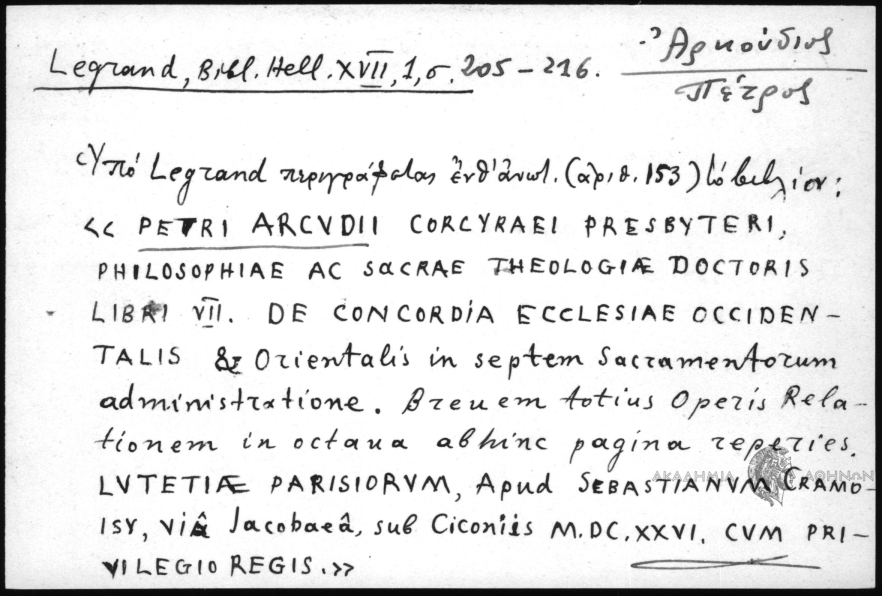 Legrand, Bibl. Hell. XVII, 1, σ. 205 – 216.
Ἀρκούδιος
Πέτρος
Ὑπό Legrand περιγράφεται ἐνθ' ἀνωτ. (ἀριθ. 153) τό βιβλίον:
<< PETRI ARCVDII CORCYRAEI PRESBYTERI,
PHILOSOPHIAE AC SACRAE THEOLOGIÆ DOCTORIS
LIBRI VII. DE CONCORDIA ECCLESIAE OCCIDEN–
TALIS & Orientalis in septem Sacramentorum
administratione. Breuem totius Operis Rela–
tionem in octaua abhinc pagina reperies.
ΑΚΑΔΗΜΙΑ ΑΘΗΝΩΝ
LVTETIÆ PARISIORVM, Apud SEBASTIANVM CRAMO–
ISY, viâ Jacobaeâ, sub Ciconiis M.DC.XXVI. CVM PRI–
VILEGIO REGIS.>>